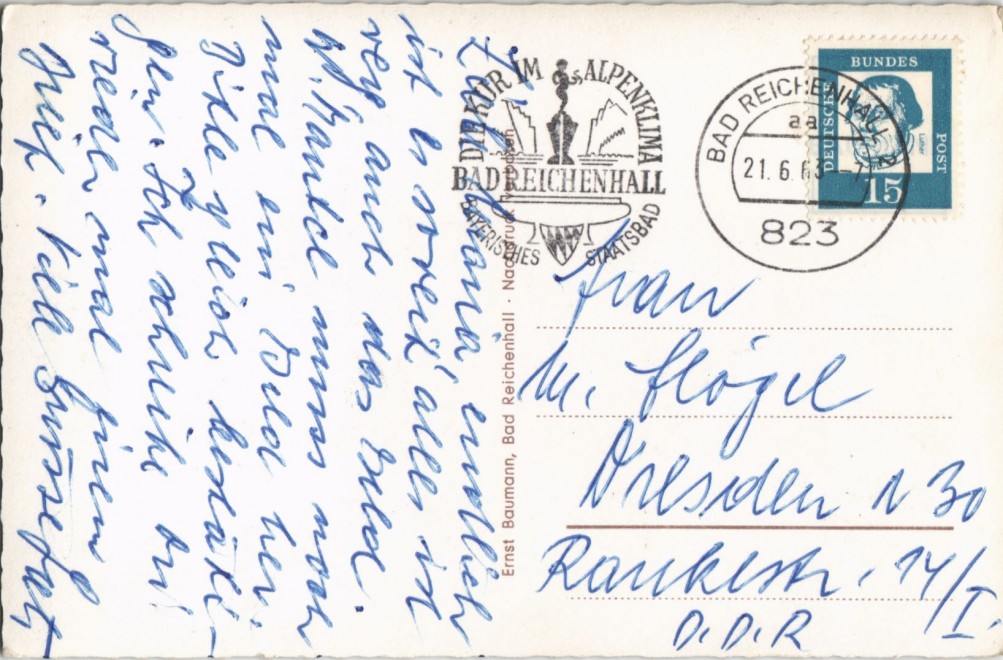 DIE KUR IM ALPENKLIMA
BAD REICHENHALL
BAYERISCHES STAATSBAD
BAD REICHENHALL 2
aa
21. 6. 63
823
BUNDES
POST
DEUTSCHE
15
Ernst Baumann, Bad Reichenhall · Nachdruck verboten
Maria endlich
ist es soweit alles ist
weg auch das Geld.
muss noch
mal ein Bild her.
Bitte gleich bestäti-
gen. Ich schreibe Dir
wieder mal
viele Grüsse
Frau
M. Flögel
Dresden N 30
Rankestr. 14/I.
D.D.R